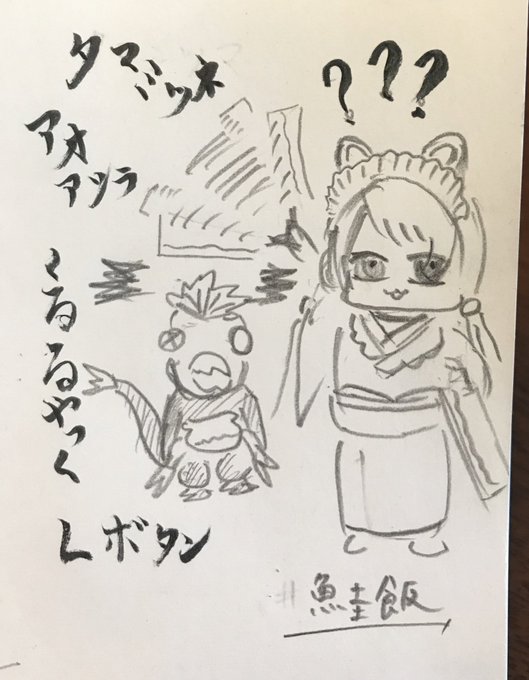 タマミツネ
アオアシラ
くるるやっく
Lボタン
???
#鮭圭飯